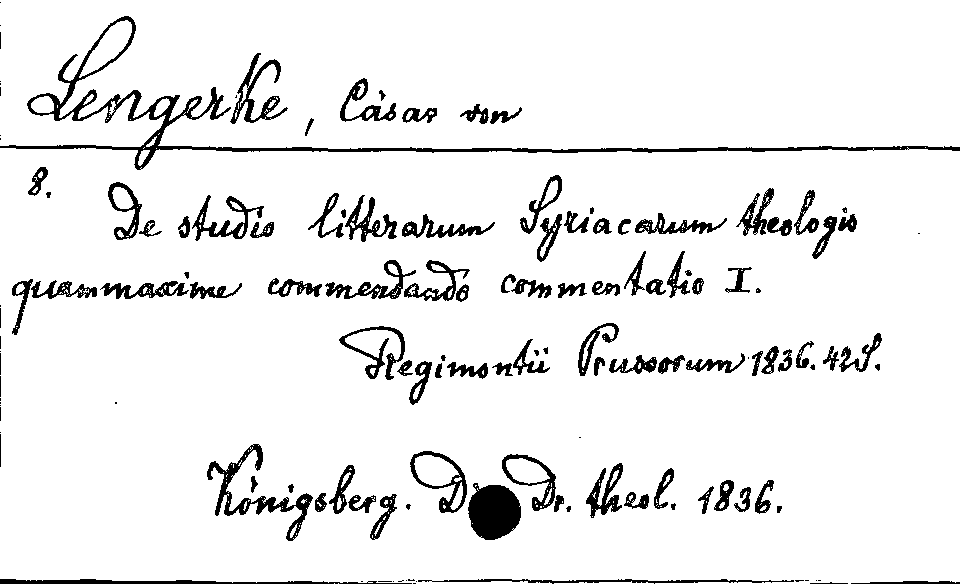 Lengerke, Cäsar von
8.
De studio litterarum Syriacarum theologis
quammaxime commendando commentatio I.
Regimontii Prussorum 1836. 42 S.
Königsberg. Dr. theol. 1836.